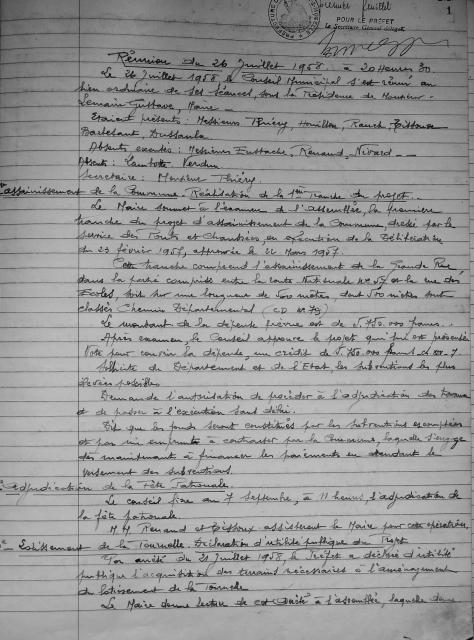 premier feuillet
1
POUR LE PREFET
Le Secrétaire Général délégué
Réunion du 26 Juillet 1958 à 20 Heures 30
Le 26 Juillet 1958 le Conseil Municipal s'est réuni au
lieu ordinaire de ses séances, sous la Présidence de Monsieur
Lemaire Gustave, Maire
Etaient présents : Messieurs Thiéry, Rauch,
Absents excusés : Messieurs Eustache, Renaud, Nivard
Absents : Verdun
Secrétaire : Monsieur Thiéry
assainissement de la Commune. Réalisation de la 1ère Tranche du projet.
Le Maire soumet à l'examen de l'Assemblée, la première
tranche du projet d'assainissement de la Commune, dressé par le
service des Ponts et Chaussées, en exécution de la délibération
du 23 février 1957, approuvée le 22 Mars 1957.
Cette tranche comprend l'assainissement de la Grande Rue
dans la partie comprise entre la route Nationale et la rue des
Ecoles, soit sur une longueur de 500 mètres dont mètres sont
classés Chemin Départemental (CD N° 79)
Le montant de la dépense prévue est de 5.750.000 francs.
Après examen, le Conseil approuve le projet qui lui est présenté
Vote pour couvrir la dépense, un crédit de 5.750.000 francs
Sollicite du Département et de l'Etat, les subventions les plus
élevées possibles
Demande l'autorisation de procéder à l'adjudication des travaux
et de passer à l'exécution sans délai.
Dit que les fonds seront constitués par les subventions escomptées
et par un emprunt à contracter par la Commune, laquelle s'engage
dès maintenant à financer les paiements en attendant le
versement des subventions.
adjudication de la Fête Patronale.
Le conseil fixe au 7 septembre, à 11 heures, l'adjudication de
la fête patronale.
M.M. Renaud et assisteront le Maire pour cette opération.
Lotissement de la Tournelle. Déclaration d'utilité publique du Projet
Par arrêté du 21 Juillet 1958, le Préfet a déclaré d'utilité
publique l'acquisition des terrains nécessaires à l'aménagement
du lotissement de la Tournelle
Le Maire donne lecture de cet arrêté à l'assemblée, laquelle